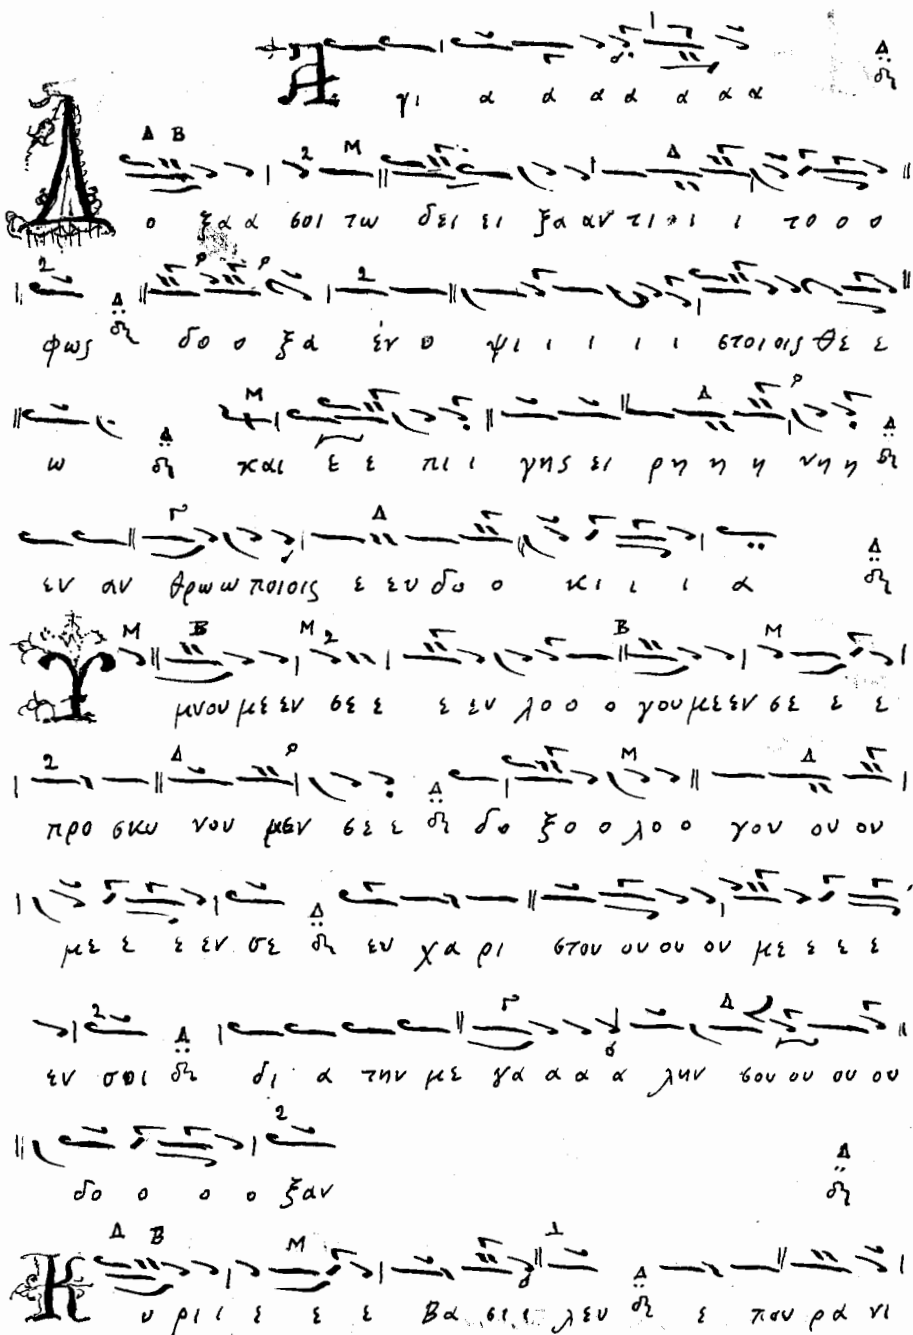 Α γι α α α α α α α
Δ ο ξα α σοι τω δει ει ξα αν τι ι ι ι το ο ο
φως δο ο ξα έν υ ψι ι ι ι ι ι στοιοις θε ε
ω και ε ε πι ι ι γης ει ρη η η η νη η
εν αν θρω ω ποιοις ε ευ δο ο κι ι ι α
Υ μνου με εν σε ε ε ευ λο ο ο γου με εν σε ε ε
προ σκυ νου μεν σε ε δο ξο ο λο ο γου ου ου
με ε ε εν σε ευ χα ρι στου ου ου ου με ε ε ε
εν σοι δι α την με γα α α α λην σου ου ου ου
δο ο ο ο ξαν
Κ υ ρι ι ε ε ε Βα σι ι ι λευ ε που ρα νι